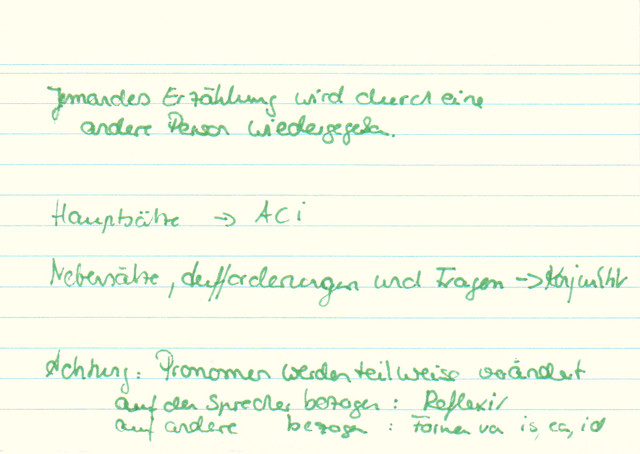 Jemandes Erzählung wird durch eine
andere Person wiedergegeben.
Hauptsätze → ACI
Nebensätze, Aufforderungen und Fragen → Konjunktiv
Achtung: Pronomen werden teilweise verändert
auf den Sprecher bezogen: Reflexiv
auf andere bezogen: Formen von is, ea, id